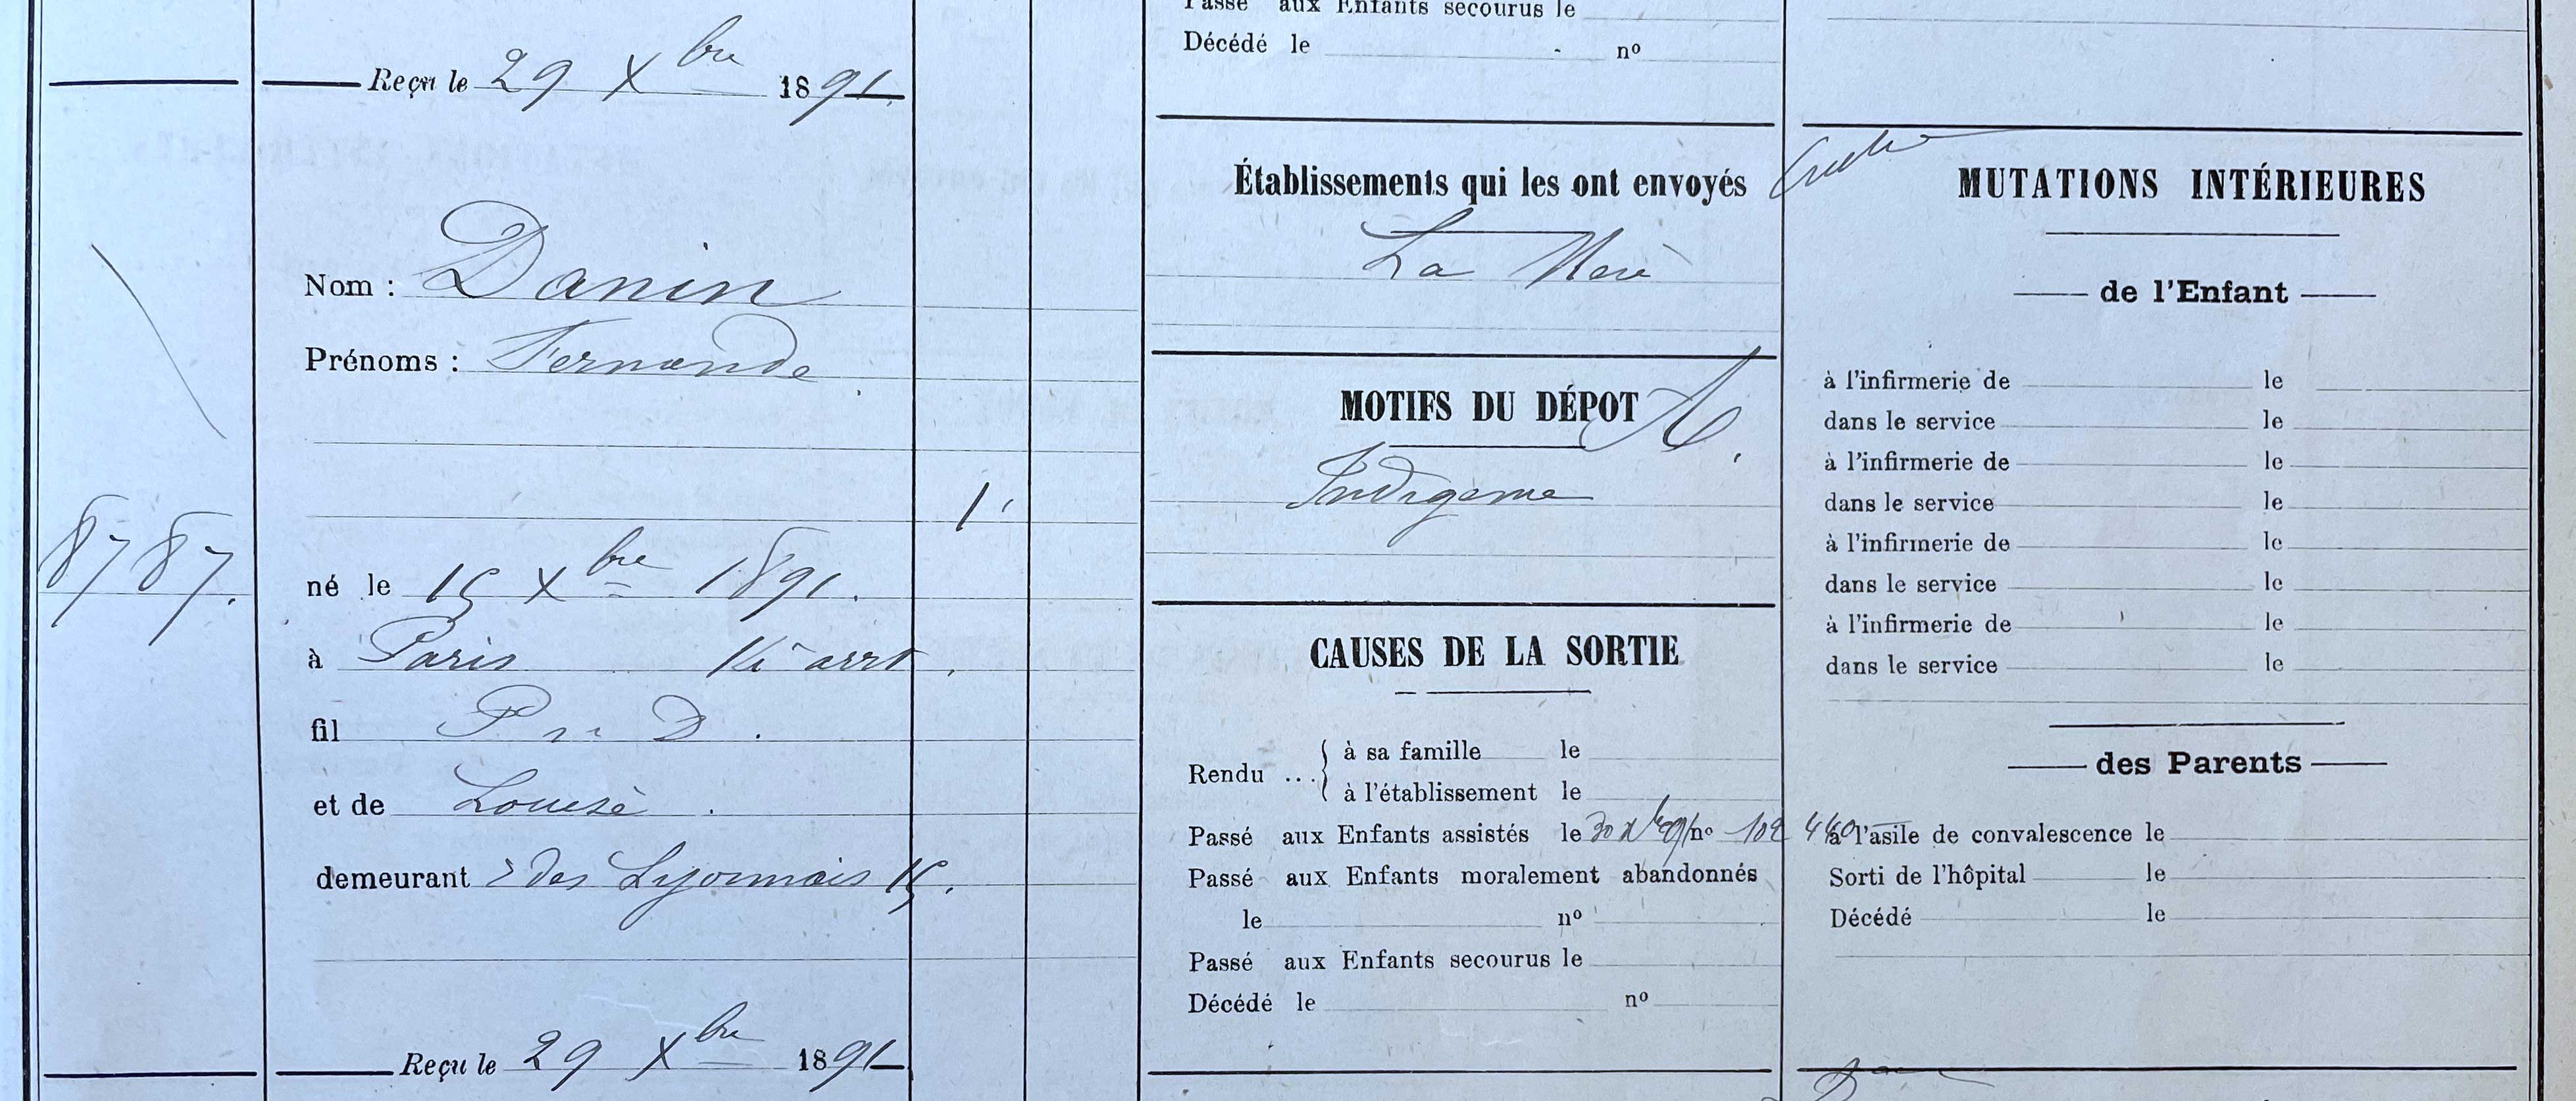 Reçu le 29 Xbre 1891.
8787.
Nom : Danin
Prénoms : Fernande
1
né le 15 Xbre 1891.
à Paris arrt.
fil P n D.
et de Louise.
demeurant r des Lyonnais 15.
Reçu le 29 Xbre 1891
Passé aux Enfants secourus le
Décédé le nº
Établissements qui les ont envoyés
La Mère
MOTIFS DU DÉPOT
Indigence
CAUSES DE LA SORTIE
Rendu ... à sa famille le
à l'établissement le
Passé aux Enfants assistés le 30 Xbre 91 nº 102 440
Passé aux Enfants moralement abandonnés
le nº
Passé aux Enfants secourus le
Décédé le nº
Creche
MUTATIONS INTÉRIEURES
de l'Enfant
à l'infirmerie de le
dans le service le
à l'infirmerie de le
dans le service le
à l'infirmerie de le
dans le service le
à l'infirmerie de le
dans le service le
des Parents
à l'asile de convalescence le
Sorti de l'hôpital le
Décédé le